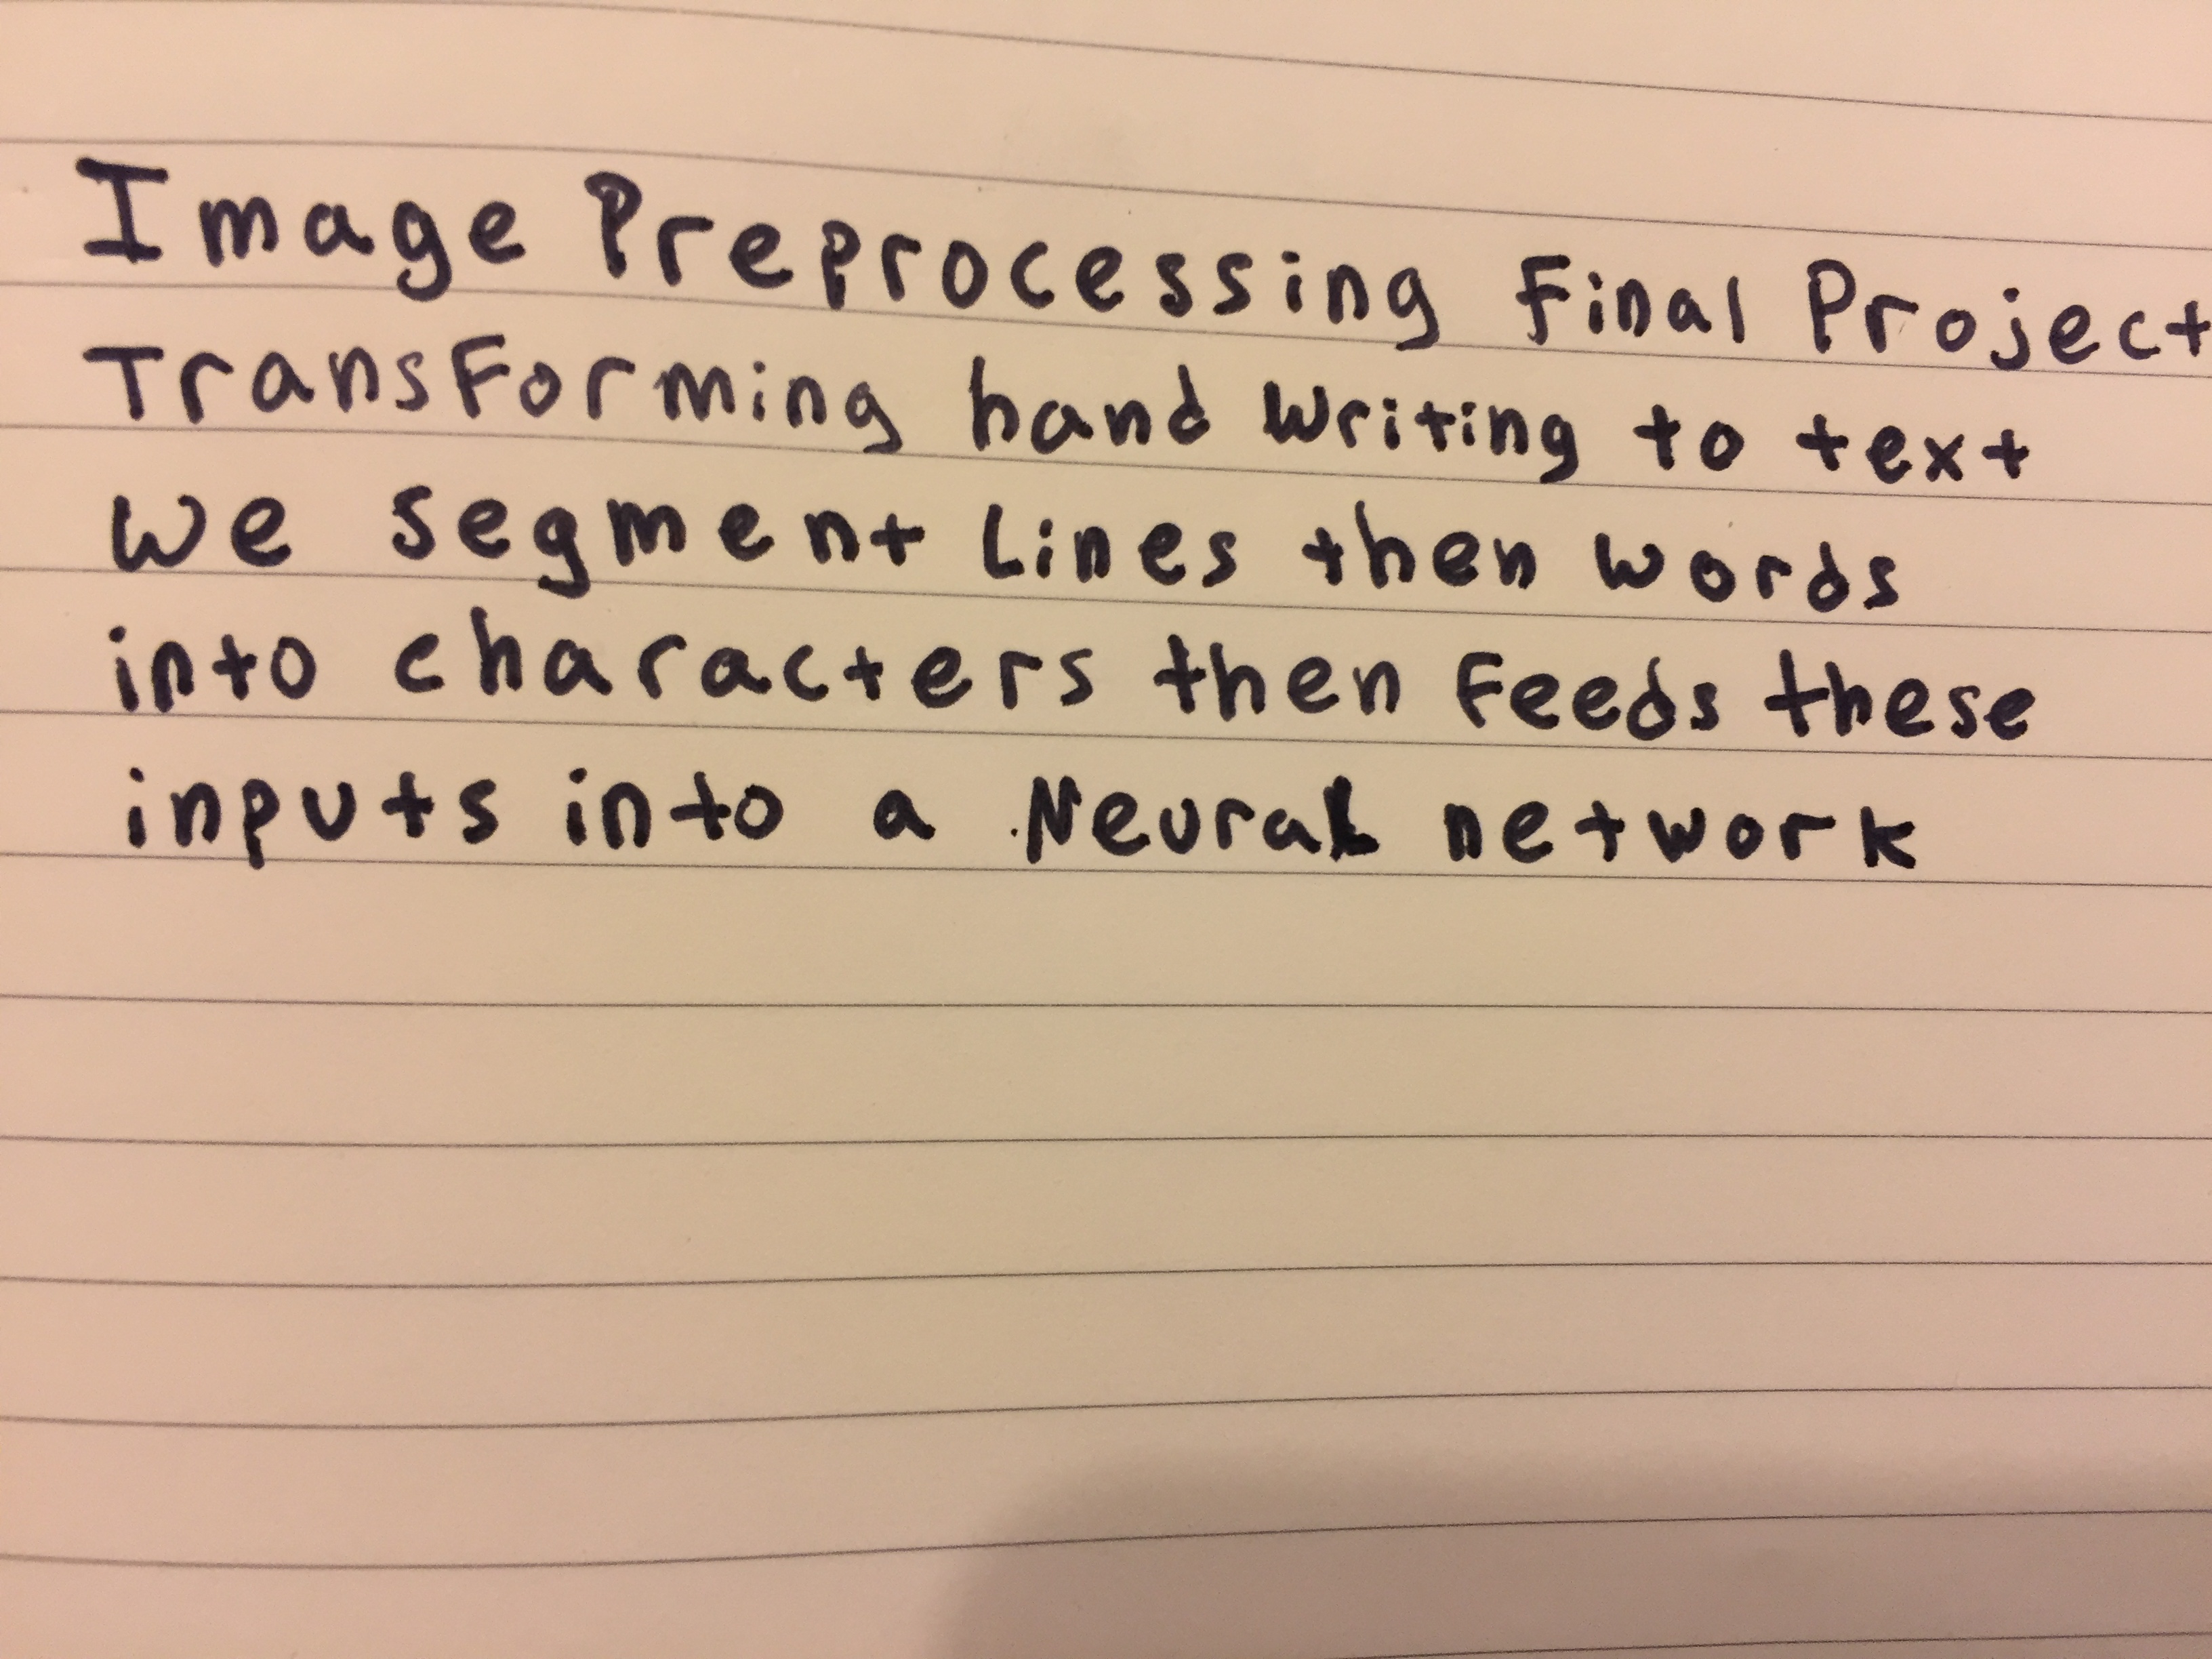 Image Preprocessing Final Project
Transforming hand writing to text
We segment Lines then words
into characters then Feeds these
inputs into a Neural network